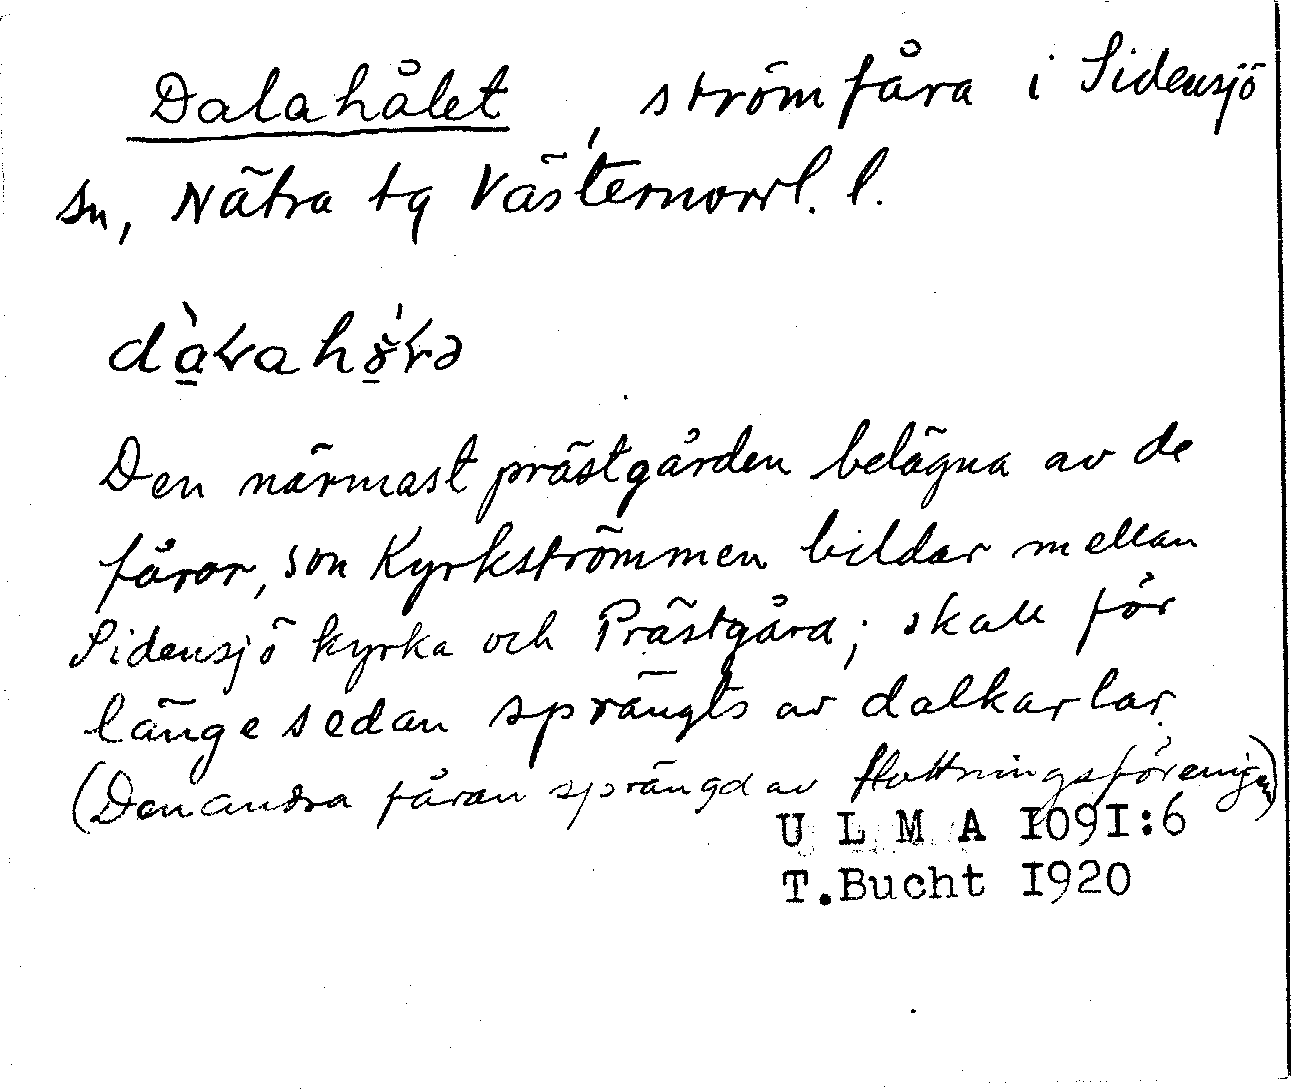 Dalahålet, strömfåra i Sidensjö
sn, Nätra tg Västernorrl. l.
Den närmast prästgården belägna av de
fåror, som Kyrkströmmen bildar mellan
Sidensjö kyrka och Prästgård; skall för
länge sedan sprängts av dalkarlar
(Den andra fåran sprängd av flottningsföreningen)
U L M A I09I:6
T.Bucht I920